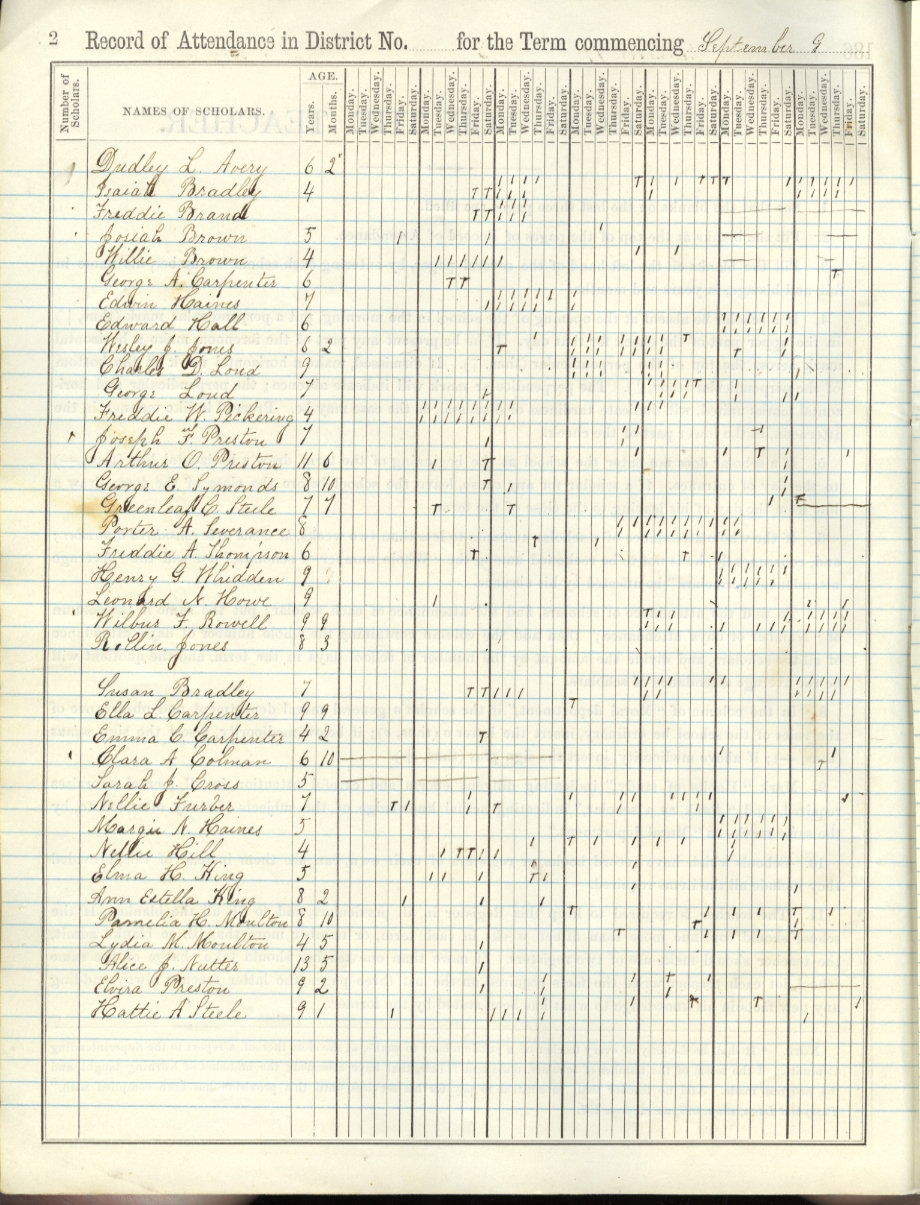 2 Record of Attendance in District No. for the Term commencing September 9
Number of Scholars.
NAMES OF SCHOLARS.
AGE.
Years. Months. Monday. Tuesday. Wednesday. Thursday. Friday. Saturday. Monday. Tuesday. Wednesday. Thursday. Friday. Saturday. Monday. Tuesday. Wednesday. Thursday. Friday. Saturday. Monday. Tuesday. Wednesday. Thursday. Friday. Saturday. Monday. Tuesday. Wednesday. Thursday. Friday. Saturday. Monday. Tuesday. Wednesday. Thursday. Friday. Saturday. Monday. Tuesday. Wednesday. Thursday. Friday. Saturday.
Dudley L. Avery 6 2
Isaiah Bradley 4
Freddie Brand
Josiah Brown 5
Willie Brown 4
George A. Carpenter 6
Edwin Haines 7
Edward Hall 6
Wesley J. Jones 6 2
Charles D. Loud 9
George Loud 7
Freddie W. Pickering 4
Joseph F. Preston 7
Arthur O. Preston 11 6
George E. Symonds 8 10
Greenleaf C. Steele 7 7
Porter A. Severance 8
Freddie A. Thompson 6
Henry G. Whidden 9
Leonard N. Howe 9
Wilbur F. Rowell 9 9
Rollin Jones 8 3
Susan Bradley 7
Ella L Carpenter 9 9
Emma C. Carpenter 4 2
Clara A Colman 6 10
Sarah J. Cross 5
Nellie Furber 7
Margie N. Haines 5
Nellie Hill 4
Elma H. King 5
Ann Estella King 8 2
Pamelia H. Moulton 8 10
Lydia M. Moulton 4 5
Alice J. Nutter 13 5
Elvira Preston 9 2
Hattie A Steele 9 1